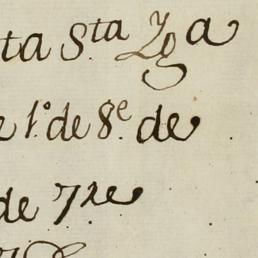 ta S.ta Zga
e 1.º de 8.e de
de 7re